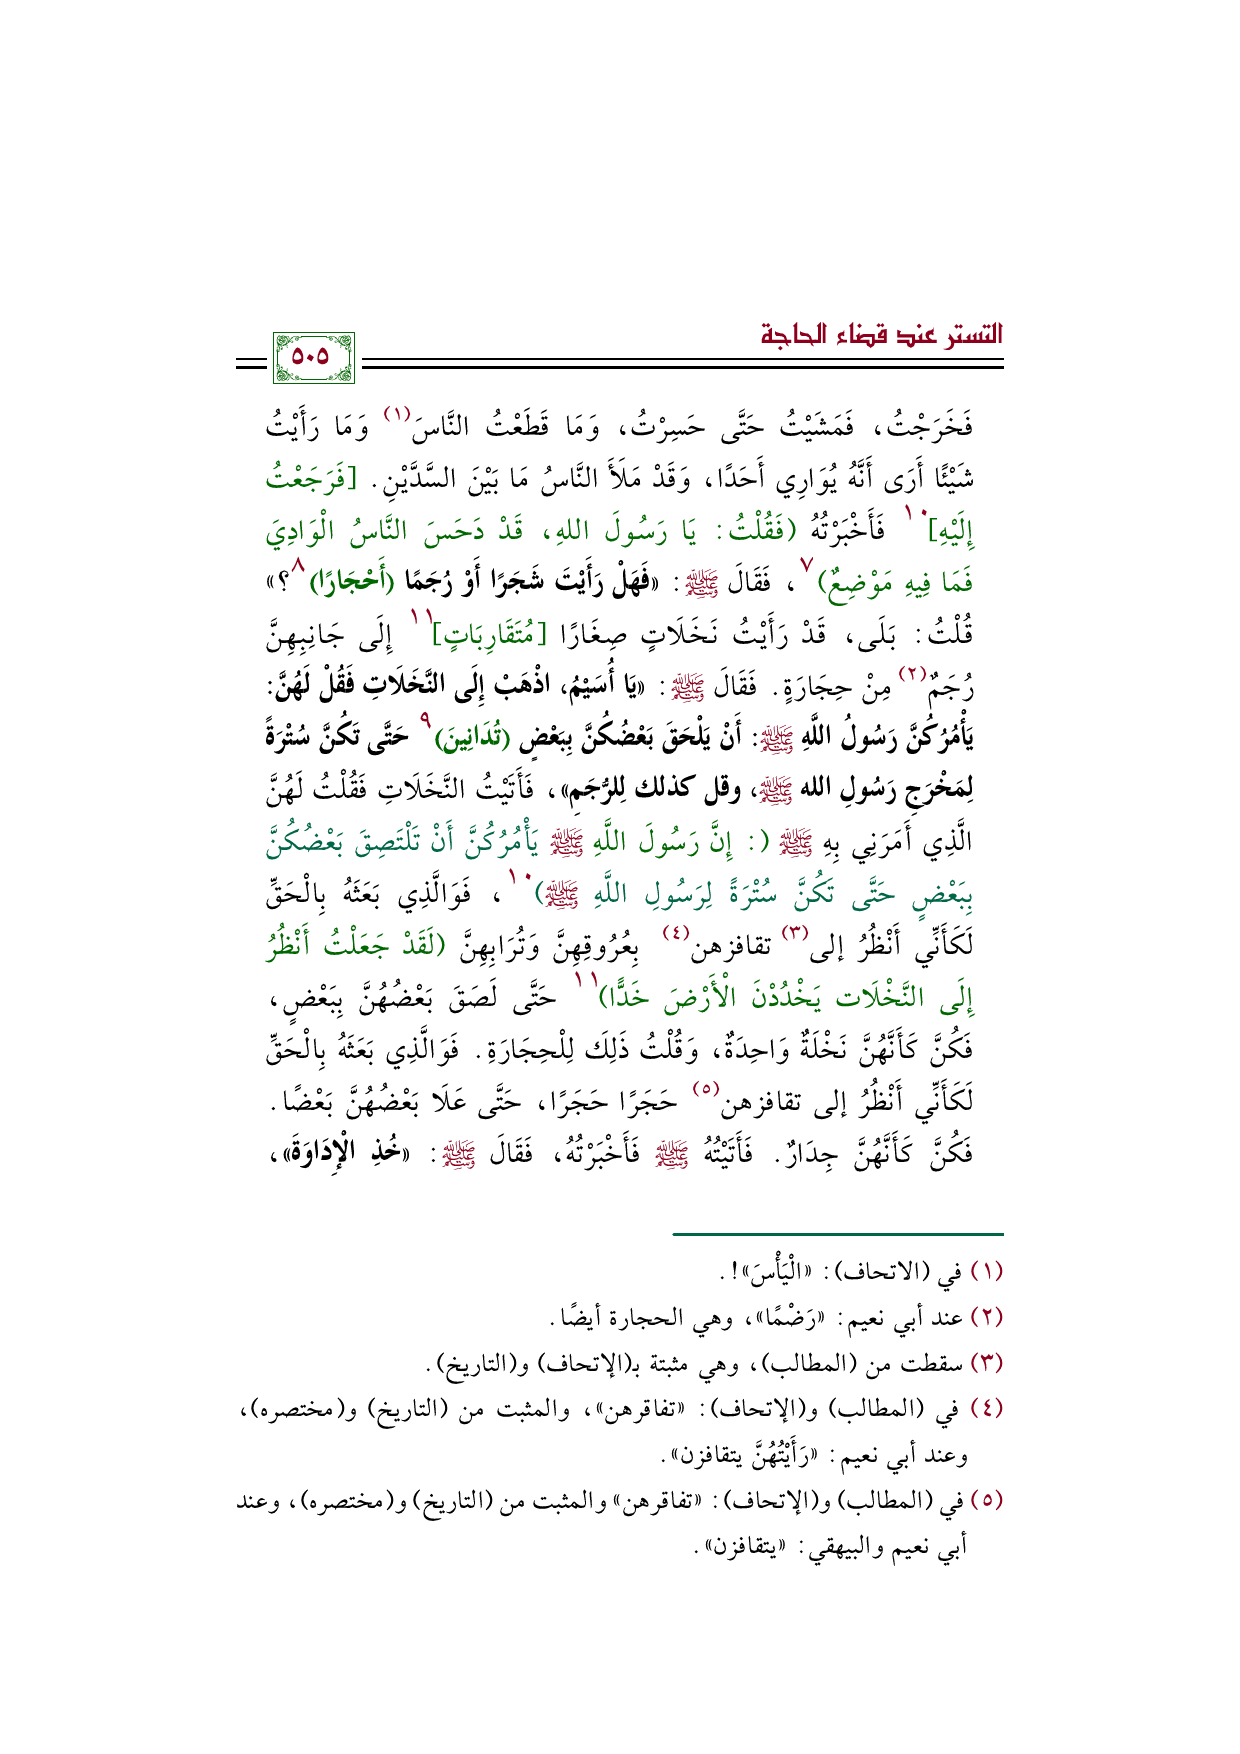 التستر عند قضاء الحاجة
٥٠٥
فَخَرَجْتُ، فَمَشَيْتُ حَتَّى حَسِرْتُ، وَمَا قَطَعْتُ النَّاسَ(١) وَمَا رَأَيْتُ
شَيْئًا أَرَى أَنَّهُ يُوَارِي أَحَدًا، وَقَدْ مَلَأَ النَّاسُ مَا بَيْنَ السَّدَّيْنِ. [فَرَجَعْتُ
إِلَيْهِ]١٠ فَأَخْبَرْتُهُ (فَقُلْتُ: يَا رَسُولَ اللهِ، قَدْ دَحَسَ النَّاسُ الْوَادِيَ
فَمَا فِيهِ مَوْضِعٌ)٧، فَقَالَ ﷺ: «فَهَلْ رَأَيْتَ شَجَرًا أَوْ رُجَمًا (أَحْجَارًا)٨؟»
قُلْتُ: بَلَى، قَدْ رَأَيْتُ نَخَلَاتٍ صِغَارًا [مُتَقَارِبَاتٍ]١١ إِلَى جَانِبِهِنَّ
رُجَمٌ(٢) مِنْ حِجَارَةٍ. فَقَالَ ﷺ: «يَا أُسَيْمُ، اذْهَبْ إِلَى النَّخَلَاتِ فَقُلْ لَهُنَّ:
يَأْمُرُكُنَّ رَسُولُ اللَّهِ ﷺ: أَنْ يَلْحَقَ بَعْضُكُنَّ بِبَعْضٍ (تُدَانِينَ)٩ حَتَّى تَكُنَّ سُتْرَةً
لِمَخْرَجِ رَسُولِ الله ﷺ، وقل كذلك لِلرُّجَمِ»، فَأَتَيْتُ النَّخَلَاتِ فَقُلْتُ لَهُنَّ
الَّذِي أَمَرَنِي بِهِ ﷺ (: إِنَّ رَسُولَ اللَّهِ ﷺ يَأْمُرُكُنَّ أَنْ تَلْتَصِقَ بَعْضُكُنَّ
بِبَعْضٍ حَتَّى تَكُنَّ سُتْرَةً لِرَسُولِ اللَّهِ ﷺ)١٠، فَوَالَّذِي بَعَثَهُ بِالْحَقِّ
لَكَأَنِّي أَنْظُرُ إلى(٣) تقافزهن(٤) بِعُرُوقِهِنَّ وَتُرَابِهِنَّ (لَقَدْ جَعَلْتُ أَنْظُرُ
إِلَى النَّخْلَات يَخْدُدْنَ الْأَرْضَ خَدًّا)١١ حَتَّى لَصَقَ بَعْضُهُنَّ بِبَعْضٍ،
فَكُنَّ كَأَنَّهُنَّ نَخْلَةٌ وَاحِدَةٌ، وَقُلْتُ ذَلِكَ لِلْحِجَارَةِ. فَوَالَّذِي بَعَثَهُ بِالْحَقِّ
لَكَأَنِّي أَنْظُرُ إلى تقافزهن(٥) حَجَرًا حَجَرًا، حَتَّى عَلَا بَعْضُهُنَّ بَعْضًا.
فَكُنَّ كَأَنَّهُنَّ جِدَارٌ. فَأَتَيْتُهُ ﷺ فَأَخْبَرْتُهُ، فَقَالَ ﷺ: «خُذِ الْإِدَاوَةَ»،
(١) في (الاتحاف): «الْيَأْسَ»!.
(٢) عند أبي نعيم: «رَضْمًا»، وهي الحجارة أيضًا.
(٣) سقطت من (المطالب)، وهي مثبتة بـ(الإتحاف) و(التاريخ).
(٤) في (المطالب) و(الإتحاف): «تفاقرهن»، والمثبت من (التاريخ) و(مختصره)،
وعند أبي نعيم: «رَأَيْتُهُنَّ يتقافزن».
(٥) في (المطالب) و(الإتحاف): «تفاقرهن» والمثبت من (التاريخ) و(مختصره)، وعند
أبي نعيم والبيهقي: «يتقافزن».